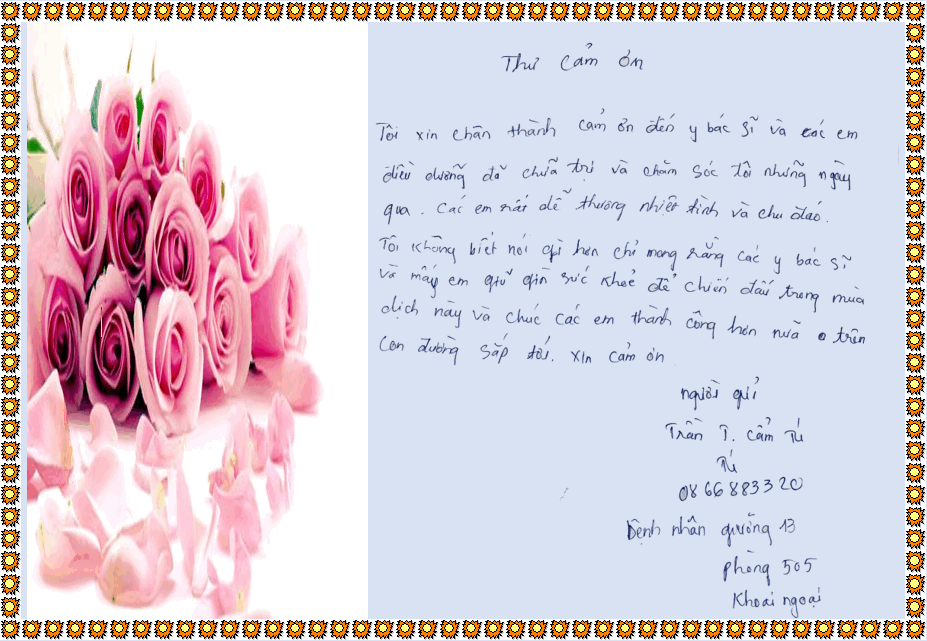 Thư cảm ơn
Tôi xin chân thành cảm ơn đến y bác sĩ và các em
điều dưỡng đã chữa trị và chăm sóc tôi những ngày
qua. Các em rất dễ thương nhiệt tình và chu đáo.
Tôi không biết nói gì hơn chỉ mong rằng các y bác sĩ
và mấy em giữ gìn sức khoẻ để chiến đấu trong mùa
dịch này và chúc các em thành công hơn nữa trên
con đường sắp tới. xin cảm ơn
người gửi
Trần T. Cẩm Tú
Tú
0866883320
Bệnh nhân giường 13
phòng 505
Khoai ngoại